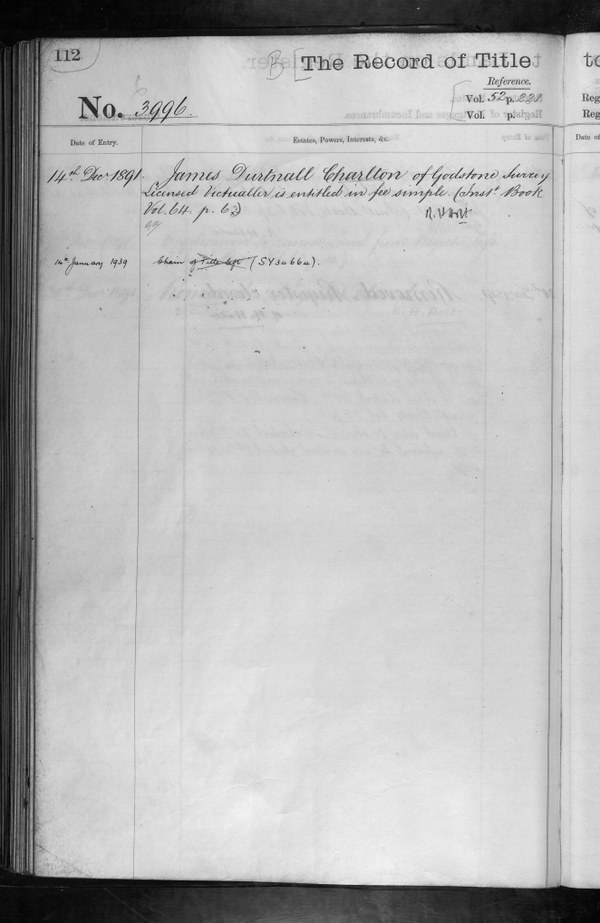 112
The Record of Title
to
Reference.
Vol. 52 p. 221
Reg
No. 3996.
Vol. p.
Reg
Date of Entry.
Estates, Powers, Interests, &c.
Date of
14th Decr 1891. James Durtnall Charlton of Godstone Surrey
Licensed Victualler is entitled in fee simple. (Inst. Book
Vol. 64. p. 62)
14th January 1939 Chain of Title left (SY32660).